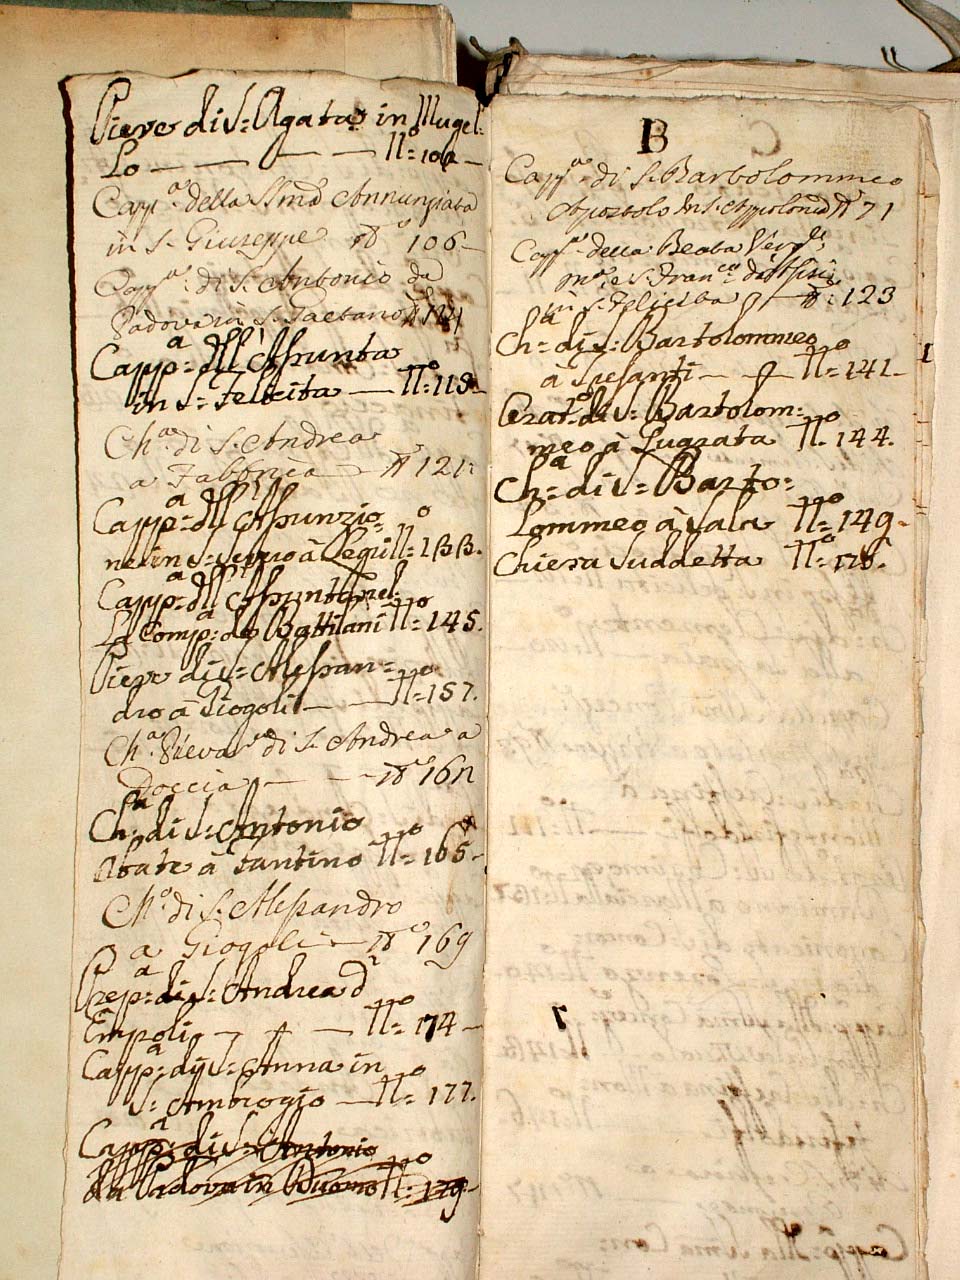 Pieve di S: Agata in Mugel:
lo — — — N.o 102 —
Capp.a della SSma Annunziata
in S. Giuseppe N.o 106 —
Capp.a di S. Antonio da
Padova in S. Gaetano N.o
Capp:a dell' Assunta
in S: Felicita — N.o 118 —
Ch.a di S. Andrea
a — N.o 121:
Capp:a dell' Assunzio
ne in S: à N.o 133.
Capp:a dell' Assunta nel
La Comp:a de Battilani N.o 145.
Pieve di S: Alessan=
dro à Giogoli — — N.o 157.
Ch.a Pieva di S. Andrea a
Doccia — — N.o 162
Ch:a di S: Antonio
Abate à Santino N.o 165 —
Ch.a di S. Alessandro
a Giogoli — N.o 169
Prep:a di S: Andrea d'
Empoli — — N.o 174 —
Capp:a di S: Anna in
S: Ambrogio — N.o 177.
Capp:a di S: Antonio
da Padova in Duomo N.o 179.
B
Capp.a di S. Bartolommeo
Apostolo in S. Appolonia N.o 71
Capp.a della Beata Verg.e
M.a e S. Fran.co d'Assisi
in S. Felicita — N.o 123
Ch:a di S: Bartolommeo
à — N.o 141 —
Orat.o di S: Bartolom:
meo à N.o 144.
Ch:a di S: Barto:
lommeo à Sala N.o 149.
Chiesa Suddetta N.o 176.